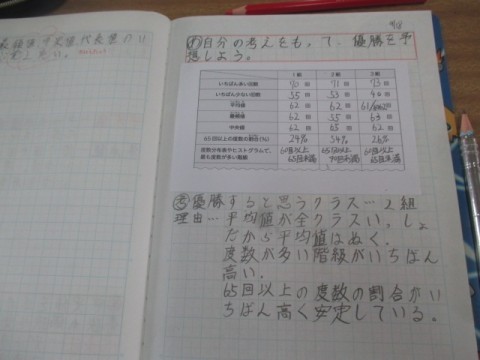 9/8
め 自分の考えをもって、優勝を予
想しよう。
1組 2組 3組
いちばん多い回数 70回 71回 73回
いちばん少ない回数 55回 53回 回
平均値 62回 62回 回
最頻値 62回 55回 65回
中央値 62回 65回 62回
65回以上の度数の割合(%) 29% 54% 26%
度数分布表やヒストグラムで、
最も度数が多い階級
60回以上 65回以上 60回以上
65回未満 70回未満 65回未満
考 優勝すると思うクラス…2組
理由…平均値が全クラスい,しょ
だから平均値はぬく。
度数が多い階級がいちばん
高い。
65回以上の度数の割合がい
ちばん高く安定している。